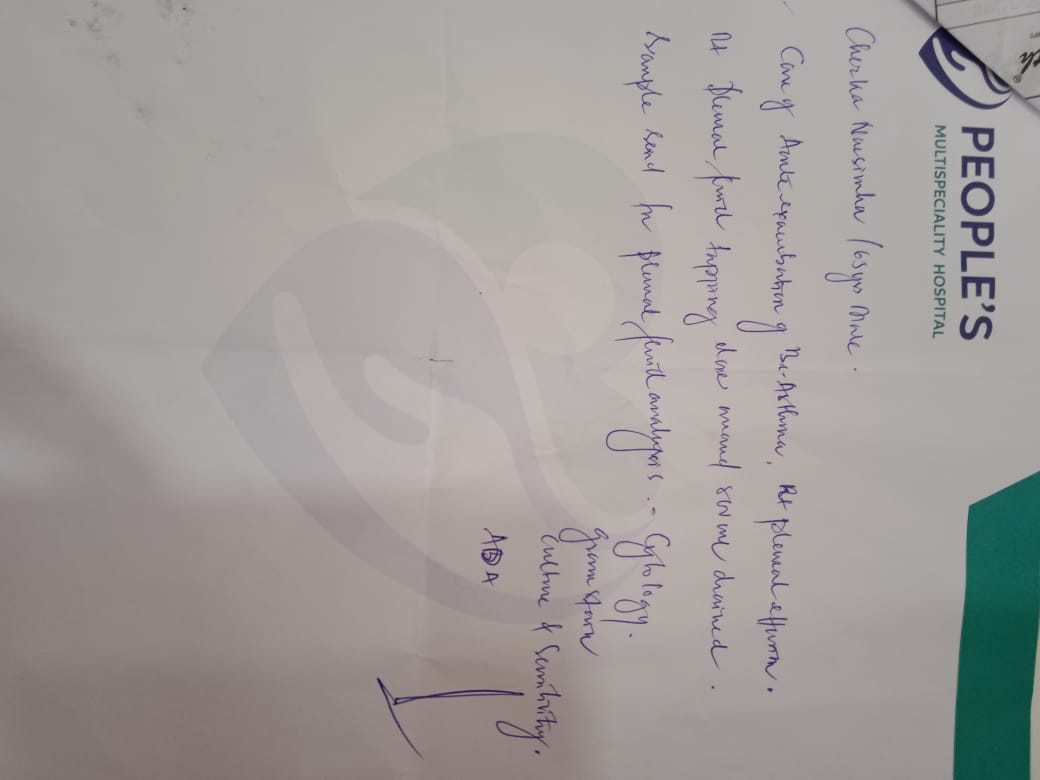 PEOPLE'S
MULTISPECIALITY HOSPITAL
Cherka Narsimha / 65yrs Male.
Case of Acute exacerbation of Br. Asthma, Rt pleural effusion.
Rt Pleural fluid tapping done around 500 ml drained.
Sample send for pleural fluid analysis. - Cytology.
gram stain
culture & Sensitivity.
ADA